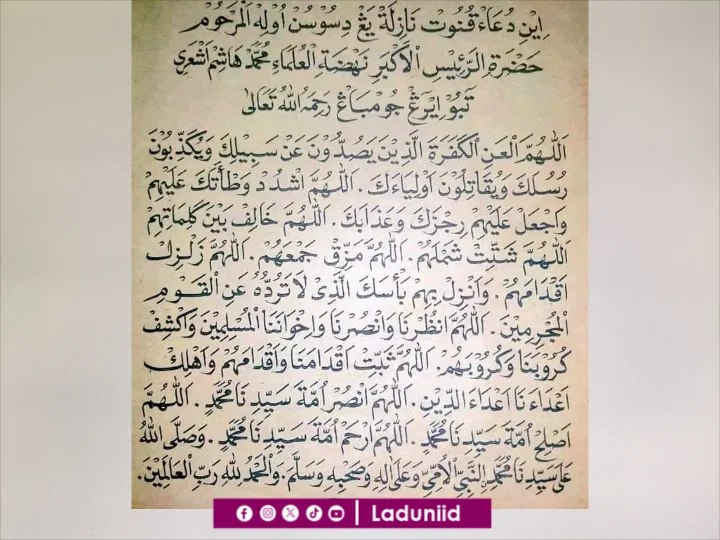 اِيْنِ دُعَاءْ قُنُوْت نَازِلَةْ يَڠْ دِسُوْسُنْ اُوْلِهْ اَلْمَرْحُوْم
حَضْرَةِ الرَّئِيْسِ الْاَكْبَرِ نَهْضَةِ الْعُلَمَاءِ مُحَمَّدْ هَاشِمْ اَشْعَرِي
تَبُوْ اِيْرَڠْ جُوْمْبَاڠْ رَحِمَهُ اللهُ تَعَالٰى
اَللّٰهُمَّ الْعَنِ الْكَفَرَةَ الَّذِيْنَ يَصُدُّوْنَ عَنْ سَبِيْلِكَ وَيُكَذِّبُوْنَ
رُسُلَكَ وَيُقَاتِلُوْنَ اَوْلِيَاءَكَ . اَللّٰهُمَّ اشْدُدْ وَطْأَتَكَ عَلَيْهِمْ
وَاجْعَلْ عَلَيْهِمْ رِجْزَكَ وَعَذَابَكَ . اَللّٰهُمَّ خَالِفْ بَيْنَ كَلِمَاتِهِمْ
اَللّٰهُمَّ شَتِّتْ شَمْلَهُمْ . اَللّٰهُمَّ مَزِّقْ جَمْعَهُمْ . اَللّٰهُمَّ زَلْزِلْ
اَقْدَامَهُمْ . وَاَنْزِلْ بِهِمْ بَأْسَكَ الَّذِيْ لَا تَرُدُّهُ عَنِ الْقَوْمِ
الْمُجْرِمِيْنَ . اَللّٰهُمَّ انْظُرْنَا وَانْصُرْنَا وَاِخْوَانَنَا الْمُسْلِمِيْنَ وَاكْشِفْ
كُرُوْبَنَا وَكُرُوْبَهُمْ. اَللّٰهُمَّ ثَبِّتْ اَقْدَامَنَا وَاَقْدَامَهُمْ وَاَهْلِكْ
اَعْدَاءَنَا اَعْدَاءَ الدِّيْنِ . اَللّٰهُمَّ انْصُرْ اُمَّةَ سَيِّدِنَا مُحَمَّدٍ . اَللّٰهُمَّ
اَصْلِحْ اُمَّةَ سَيِّدِنَا مُحَمَّدٍ . اَللّٰهُمَّ ارْحَمْ اُمَّةَ سَيِّدِنَا مُحَمَّدٍ . وَصَلَّى اللهُ
عَلٰى سَيِّدِنَا مُحَمَّدٍ النَّبِيِّ الْاُمِّيِّ وَعَلٰى اٰلِهِ وَصَحْبِهِ وَسَلَّمَ . وَالْحَمْدُ لِلّٰهِ رَبِّ الْعَالَمِيْنَ .
Laduniid